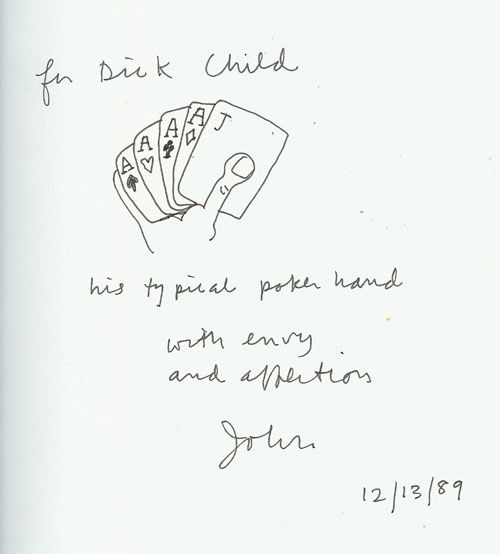 for Dick Child
A A A A J
his typical poker hand
with envy
and affection
John
12/13/89